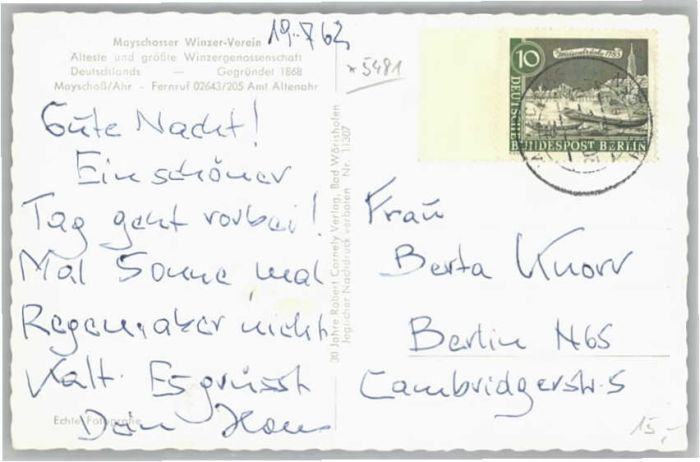 19.7.62
Mayschosser Winzer-Verein
Älteste und größte Winzergenossenschaft
Deutschlands — Gegründet 1868
Mayschoß/Ahr - Fernruf 02643/205 Amt Altenahr
*5481
Gute Nacht!
Ein schöner
Tag geht vorbei!
Mal Sonne mal
Regen, aber nicht
Kalt. Es grüsst
Dein Hans
Echte Fotografie
30 Jahre Robert Cornely Verlag, Bad Wörishofen
Jeglicher Nachdruck verboten Nr. 11307
10
DEUTSCHE
BUNDESPOST BERLIN
Frau
Berta Knorr
Berlin N65
Cambridgerstr. 5
15,-